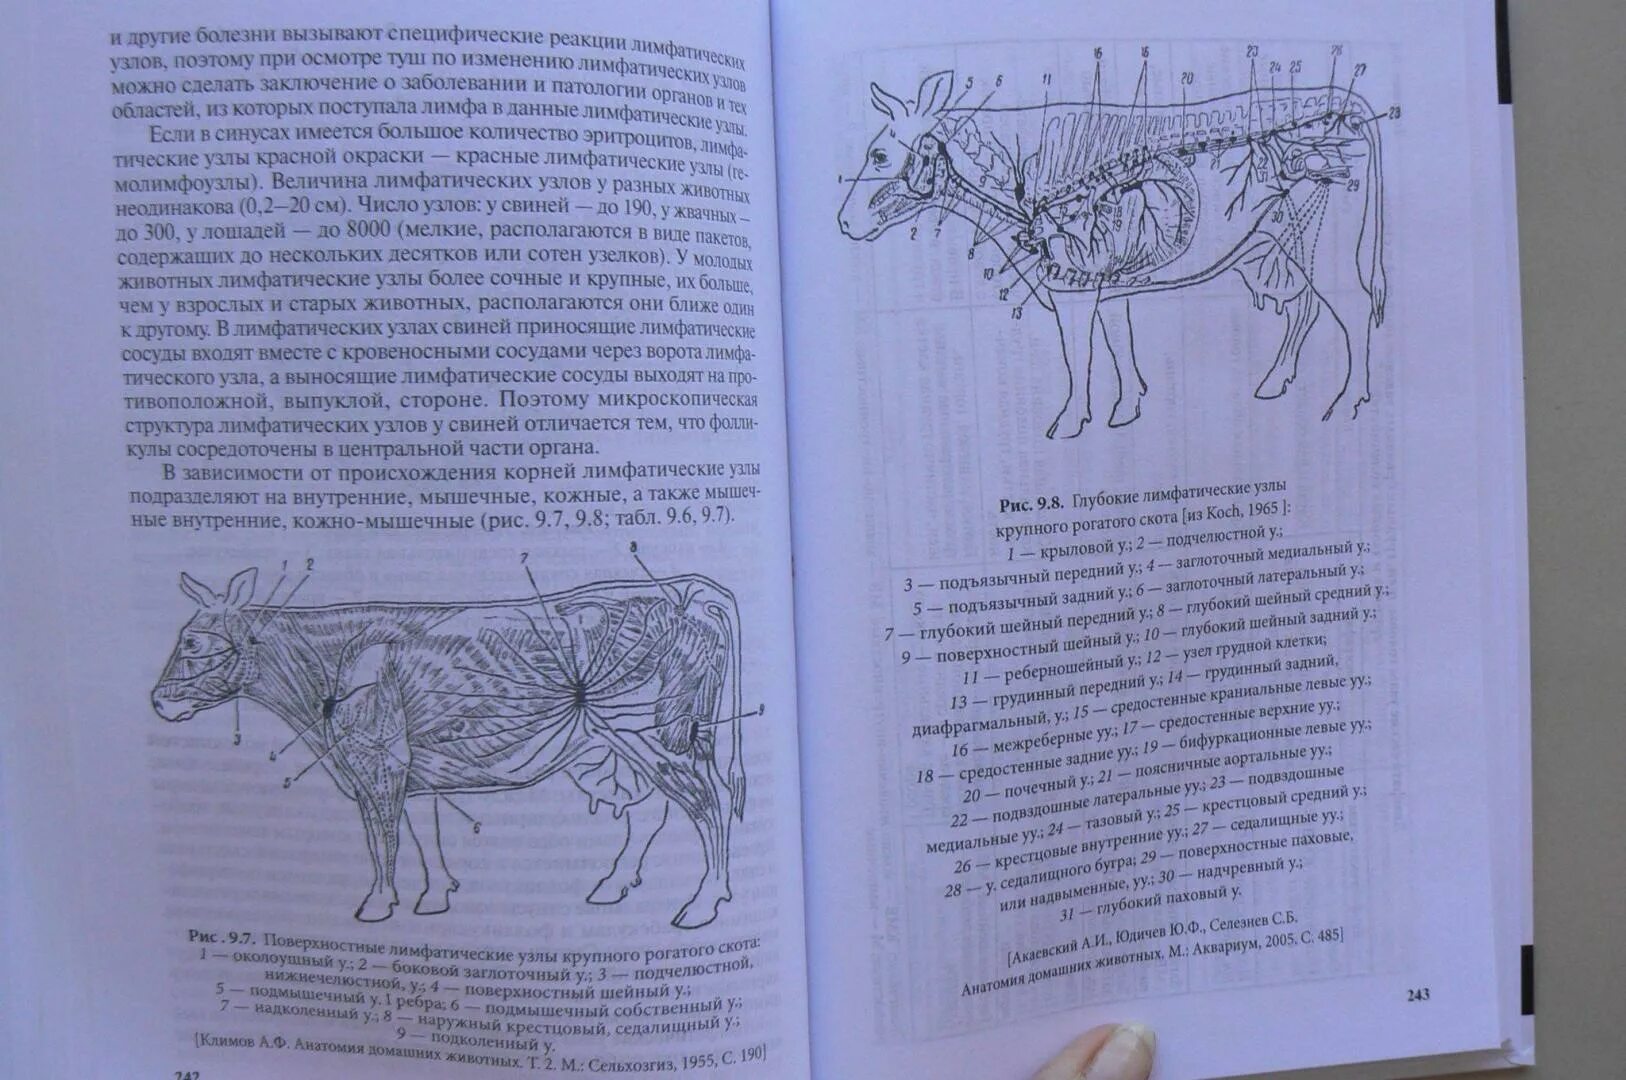 и другие болезни вызывают специфические реакции лимфатических
узлов, поэтому при осмотре туш по изменению лимфатических узлов
можно сделать заключение о заболевании и патологии органов и тех
областей, из которых поступала лимфа в данные лимфатические узлы.
Если в синусах имеется большое количество эритроцитов, лимфа-
тические узлы красной окраски — красные лимфатические узлы (ге-
молимфоузлы). Величина лимфатических узлов у разных животных
неодинакова (0,2—20 см). Число узлов: у свиней — до 190, у жвачных —
до 300, у лошадей — до 8000 (мелкие, располагаются в виде пакетов,
содержащих до нескольких десятков или сотен узелков). У молодых
животных лимфатические узлы более сочные и крупные, их больше,
чем у взрослых и старых животных, располагаются они ближе один
к другому. В лимфатических узлах свиней приносящие лимфатические
сосуды входят вместе с кровеносными сосудами через ворота лимфа-
тического узла, а выносящие лимфатические сосуды выходят на про-
тивоположной, выпуклой, стороне. Поэтому микроскопическая
структура лимфатических узлов у свиней отличается тем, что фолли-
кулы сосредоточены в центральной части органа.
В зависимости от происхождения корней лимфатические узлы
подразделяют на внутренние, мышечные, кожные, а также мышеч-
ные внутренние, кожно-мышечные (рис. 9.7, 9.8; табл. 9.6, 9.7).
1 2 7 8
9
3 4 5 6
Рис. 9.7. Поверхностные лимфатические узлы крупного рогатого скота:
1 — околоушный у.; 2 — боковой заглоточный у.; 3 — подчелюстной,
нижнечелюстной, у.; 4 — поверхностный шейный у.;
5 — подмышечный у. 1 ребра; 6 — подмышечный собственный у.;
7 — надколенный у.; 8 — наружный крестцовый, седалищный у.;
9 — подколенный у.
[Климов А.Ф. Анатомия домашних животных. Т. 2. М.: Сельхозгиз, 1955, С. 190]
242
5 6 11 16 16 20 23 24 25 26 27
28
1 9 29
2 7 8 18 19 22 30
10 12 13
Рис. 9.8. Глубокие лимфатические узлы
крупного рогатого скота [из Koch, 1965 ]:
1 — крыловой у.; 2 — подчелюстной у.;
3 — подъязычный передний у.; 4 — заглоточный медиальный у.;
5 — подъязычный задний у.; 6 — заглоточный латеральный у.;
7 — глубокий шейный передний у.; 8 — глубокий шейный средний у.;
9 — поверхностный шейный у.; 10 — глубокий шейный задний у.;
11 — реберношейный у.; 12 — узел грудной клетки;
13 — грудинный передний у.; 14 — грудинный задний,
диафрагмальный, у.; 15 — средостенные краниальные левые уу.;
16 — межреберные уу.; 17 — средостенные верхние уу.;
18 — средостенные задние уу.; 19 — бифуркационные левые уу.;
20 — почечный у.; 21 — поясничные аортальные уу.;
22 — подвздошные латеральные уу.; 23 — подвздошные
медиальные уу.; 24 — тазовый у.; 25 — крестцовый средний у.;
26 — крестцовые внутренние уу.; 27 — седалищные уу.;
28 — у. седалищного бугра; 29 — поверхностные паховые,
или надвыменные, уу.; 30 — надчревный у.;
31 — глубокий паховый у.
[Акаевский А.И., Юдичев Ю.Ф., Селезнев С.Б.
Анатомия домашних животных. М.: Аквариум, 2005. С. 485]
243